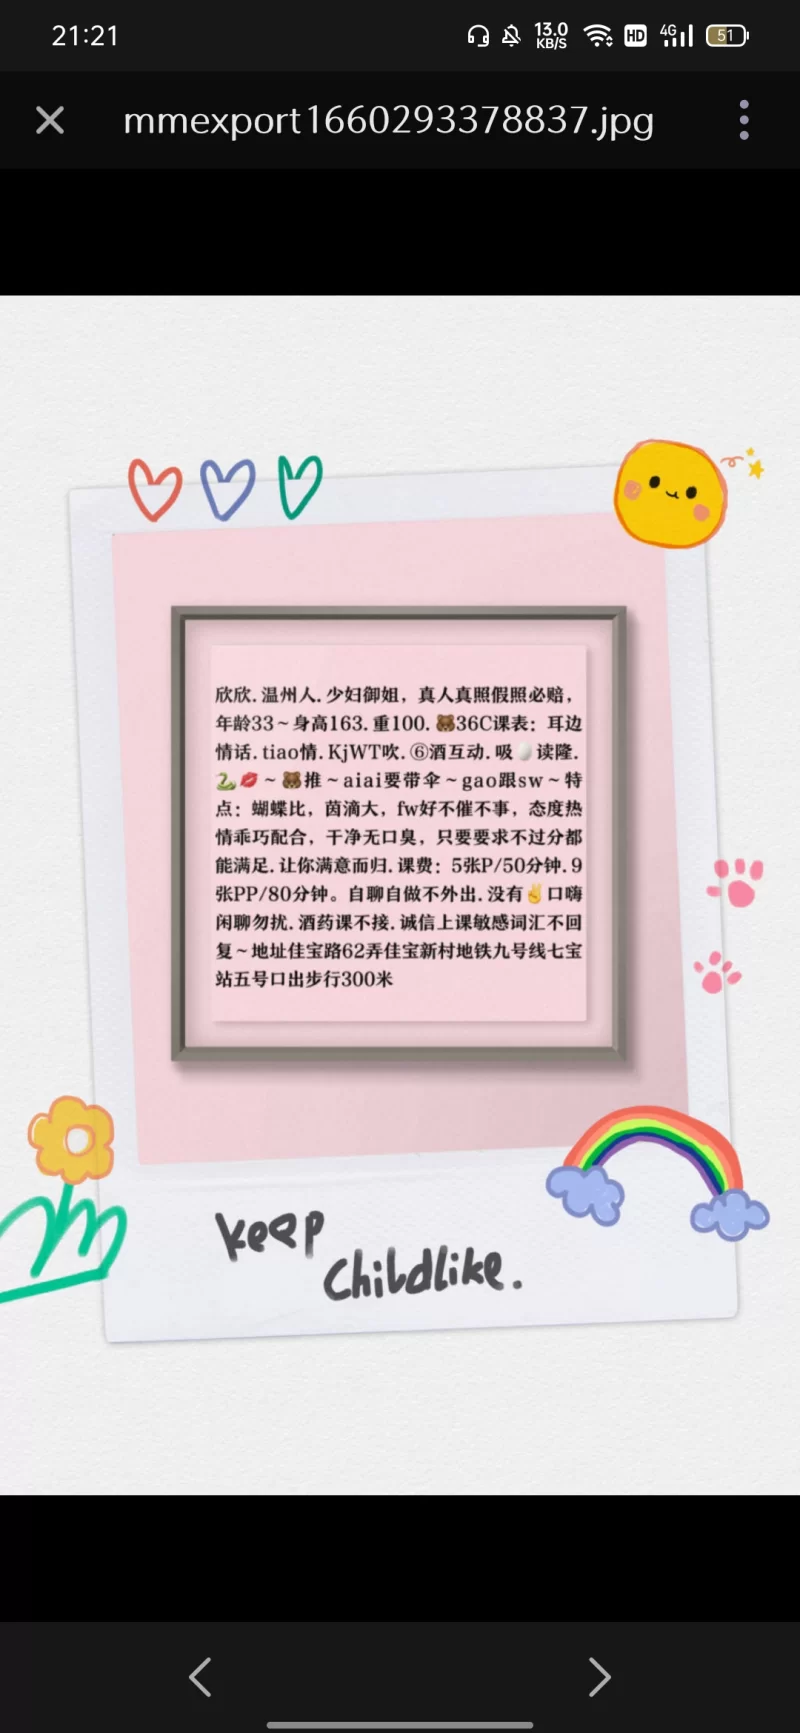 21:21
13.0
KB/S
HD
4G
51
mmexport1660293378837.jpg
欣欣.温州人.少妇御姐，真人真照假照必赔，
年龄33～身高163.重100.🐻36C课表：耳边
情话.tiao情.KjWT吹.⑥酒互动.吸🥚读隆.
🐍💋～🐻推～aiai要带伞～gao跟sw～特
点：蝴蝶比，茵滴大，fw好不催不事，态度热
情乖巧配合，干净无口臭，只要要求不过分都
能满足.让你满意而归.课费：5张P/50分钟.9
张PP/80分钟。自聊自做不外出.没有✌️口嗨
闲聊勿扰.酒药课不接.诚信上课敏感词汇不回
复～地址佳宝路62弄佳宝新村地铁九号线七宝
站五号口出步行300米
keep
childlike.